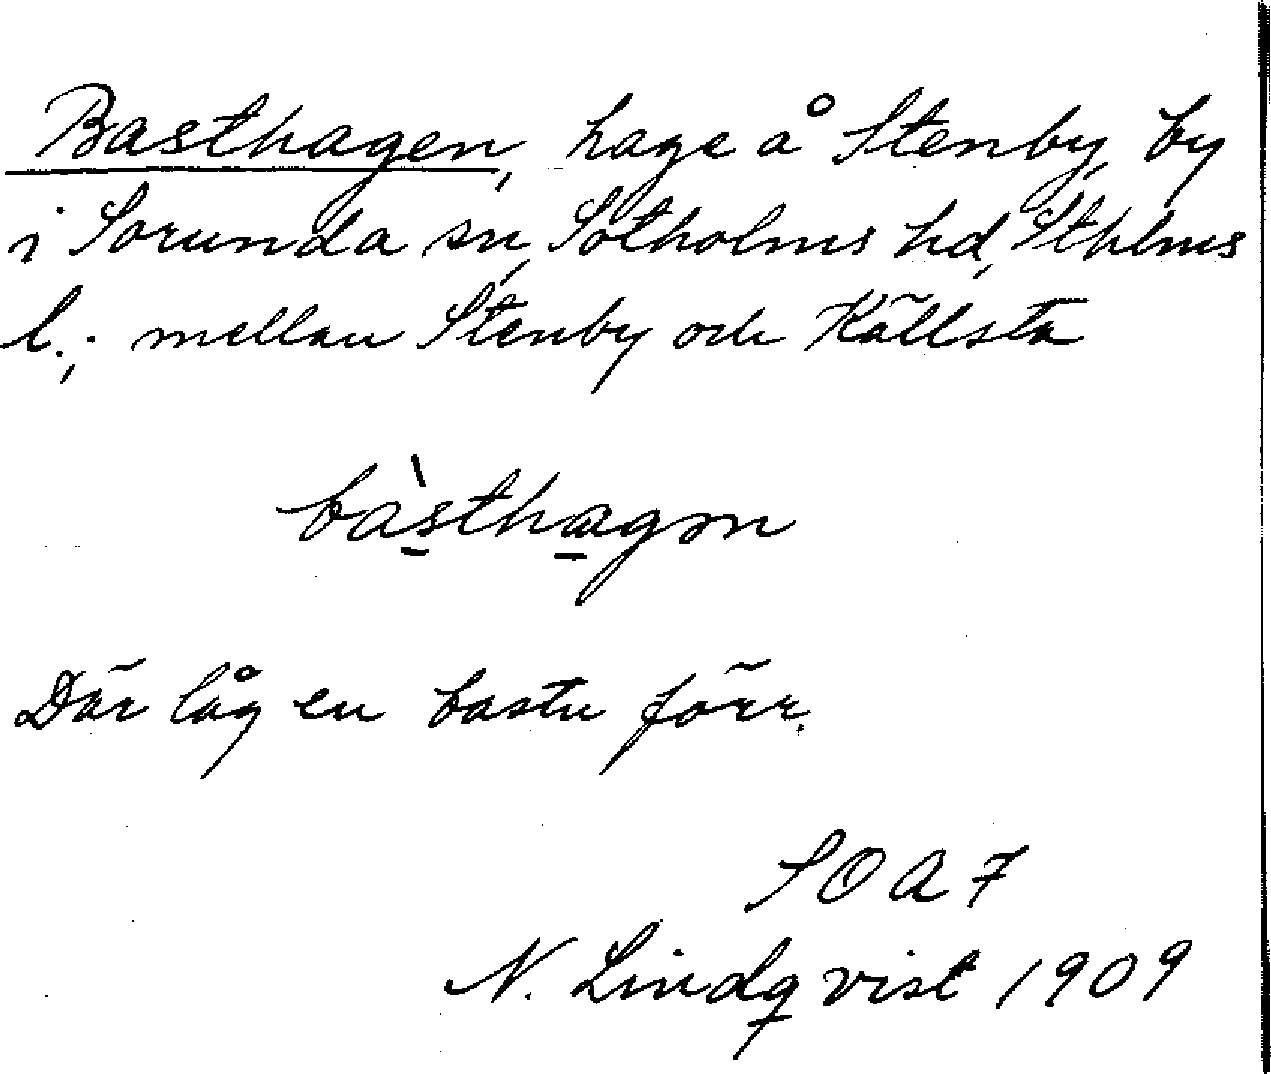 Basthagen, hage å Stenby, by
i Sorunda sn, Sotholms hd, Sthlms
l.; mellan Stenby och Källsta
bàsthagən
Där låg en bastu förr.
SOA 7
N. Lindqvist 1909